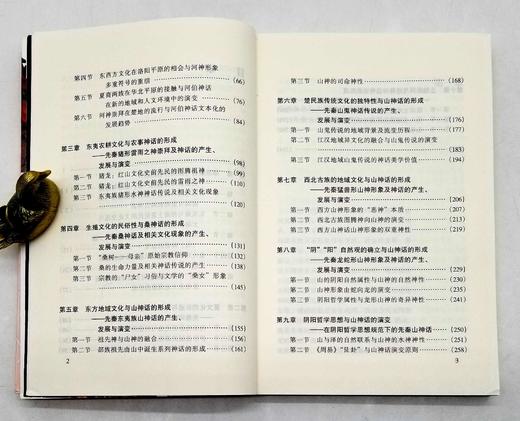 第四节 东西方文化在洛阳平原的相会与河神形象
多重符号的重组 (66)
第五节 夏商两族在华北平原的接触与河伯神话
在新的地域和人文环境中的演变 (76)
第六节 河神崇拜在楚地的流行与河伯神话文本化的
发展趋势 (84)
第三章 东夷农耕文化与农事神话的形成
——先秦猪形雷雨之神崇拜及神话的产生、
发展与演变 (98)
第一节 猪龙：红山文化史前先民的图腾祖神 (98)
第二节 猪龙：红山文化史前先民的雷雨之神 (109)
第三节 东夷族猪形水神神话传说及相关文化现象 (119)
第四章 生殖文化的民俗性与桑神话的形成
——先秦桑神话及相关文化现象的产生、
发展与演变 (131)
第一节 “桑树——母亲”原始宗教信仰 (132)
第二节 桑的生命力量及相关神话传说的产生 (138)
第三节 宗教的“尸女”习俗与文学的“桑女”形象
(145)
第五章 东方地域文化与山神话的形成
——先秦东夷族山神话的产生、
发展与演变 (155)
第一节 祖先神与山神的融合 (156)
第二节 部族祖先由山中诞生系列神话的形成 (161)
2
第三节 山神的司命神性 (168)
第六章 楚民族传统文化的独特性与山神话的形成
——先秦山鬼神话传说的产生、
发展与演变 (176)
第一节 山鬼传说的地域背景及流变历程 (177)
第二节 江汉地域异文化的融合与山鬼传说的演变
(183)
第三节 江汉地域山鬼传说的神话美学价值 (194)
第七章 西北古族的地域文化与山神话的形成
——先秦猛兽形山神形象及神话的产生、
发展与演变 (206)
第一节 西方山神形象的“恶神”本质 (207)
第二节 西北古族图腾神向山神的演变 (213)
第三节 西方山神话山神形象的双重神性 (221)
第八章 “阴”“阳”自然观的确立与山神话的形成
——先秦龙蛇形山神形象及神话的产生、
发展与演变 (229)
第一节 山的阴阳自然属性与山神的自然神性 (230)
第二节 山神形象由蛇向龙的演变 (235)
第三节 阴阳哲学属性与龙形山神的奇异神性 (241)
第九章 阴阳哲学思想与山神话的演变
——在阴阳哲学思想规范下的先秦山神话 (250)
第一节 山与泽的自然联系与山神的水神神性 (251)
第二节 《周易》“艮卦”与山神话演变原则 (258)
3